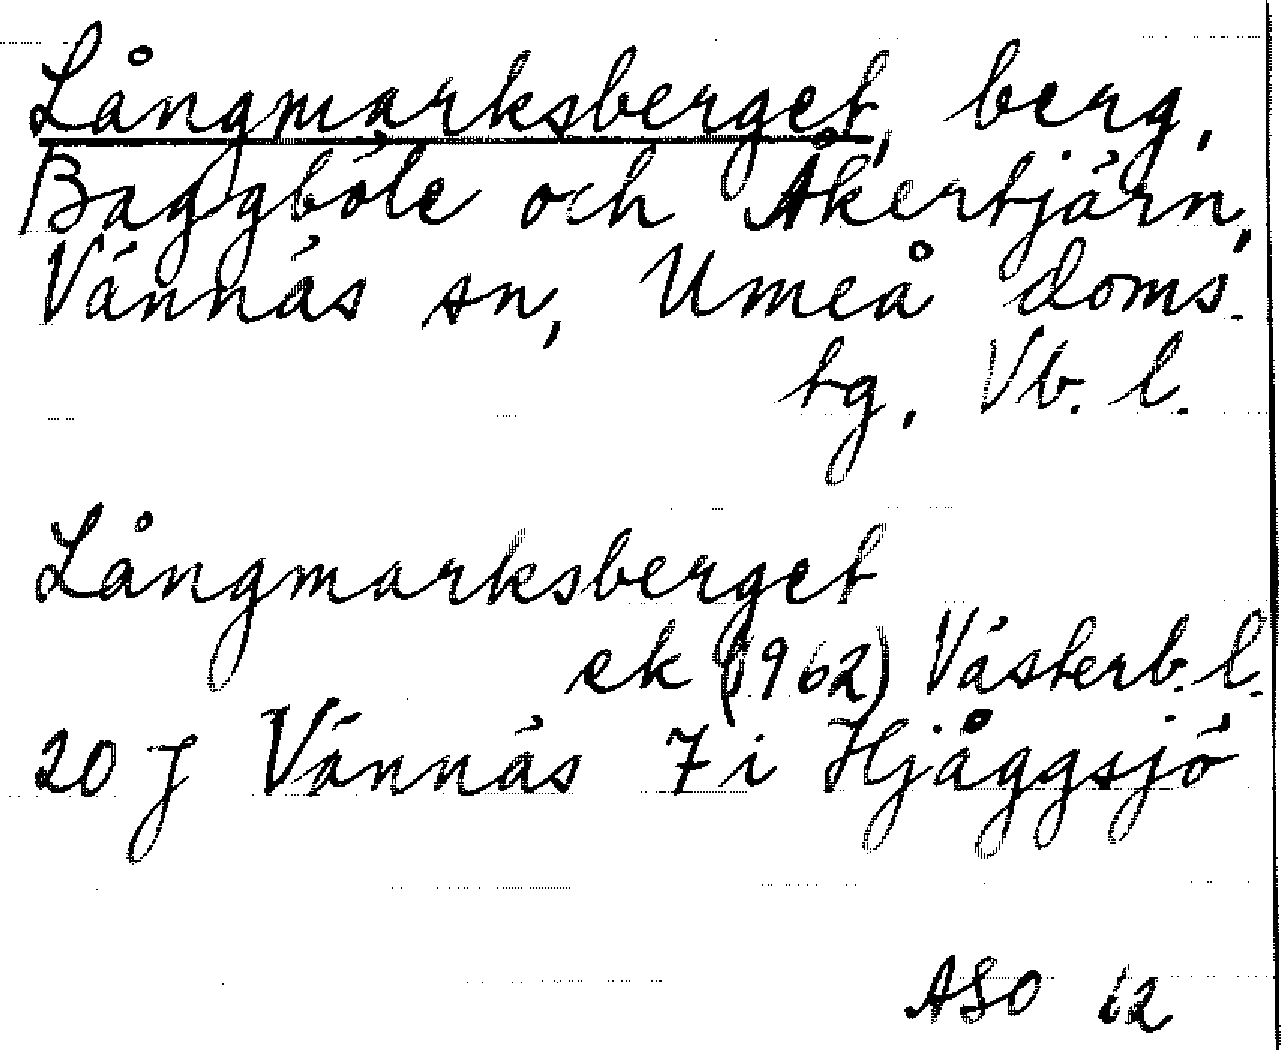 Långmarksberget, berg,
Baggböle och Åkertjärn,
Vännäs sn, Umeå doms.
tg, Vb. l.
Långmarksberget
ek (1962) Västerb. l.
20 J Vännäs 7 i Hjåggsjö
ASO 62